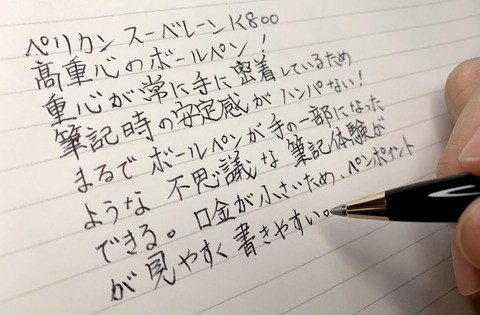 ペリカン スーベレーン K800
高重心のボールペン！
重心が常に手に密着しているため
筆記時の安定感がハンパない！
まるでボールペンが手の一部になった
ような不思議な筆記体験が
できる。口金が小さいため、ペンポイント
が見やすく書きやすい。